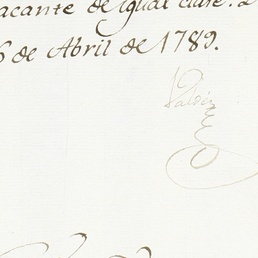 acante de igual clase.
6 de Abril de 1789.
Valdés